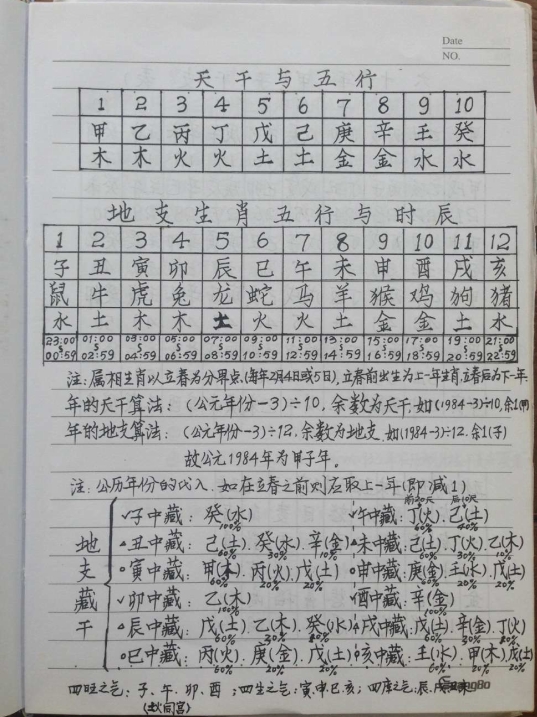 Date
NO.
天干与五行
1 2 3 4 5 6 7 8 9 10
甲 乙 丙 丁 戊 己 庚 辛 壬 癸
木 木 火 火 土 土 金 金 水 水
地支生肖五行与时辰
1 2 3 4 5 6 7 8 9 10 11 12
子 丑 寅 卯 辰 巳 午 未 申 酉 戌 亥
鼠 牛 虎 兔 龙 蛇 马 羊 猴 鸡 狗 猪
水 土 木 木 土 火 火 土 金 金 土 水
23:00 01:00 03:00 05:00 07:00 09:00 11:00 13:00 15:00 17:00 19:00 21:00
00:59 02:59 04:59 06:59 08:59 10:59 12:59 14:59 16:59 18:59 20:59 22:59
注:属相生肖以立春为分界点,(每年2月4日或5日),立春前出生为上一年生肖,立春后为下一年.
年的天干算法:(公元年份-3)÷10,余数为天干,如(1984-3)÷10,余1(甲)
年的地支算法:(公元年份-3)÷12,余数为地支,如(1984-3)÷12.余1(子)
故公元1984年为甲子年。
注:公历年份的代入.如在立春之前则应取上一年(即减1)
地支藏干
✓子中藏:癸(水) ✓午中藏:丁(火).己(土)
100% 60% 40%
丑中藏:己(土).癸(水).辛(金) 未中藏:己(土).丁(火).乙(木)
60% 30% 10% 60% 30% 10%
寅中藏:甲(木).丙(火).戊(土) 申中藏:庚(金).壬(水).戊(土)
60% 20% 20% 60% 20% 20%
✓卯中藏:乙(木) ✓酉中藏:辛(金)
100% 100%
辰中藏:戊(土).乙(木).癸(水) 戌中藏:戊(土).辛(金).丁(火)
巳中藏:丙(火).庚(金).戊(土) 亥中藏:壬(水).甲(木).戊(土)
四旺之气:子、午、卯、酉;四生之气:寅.申.巳.亥;四库之气:辰.
(火土同宫)